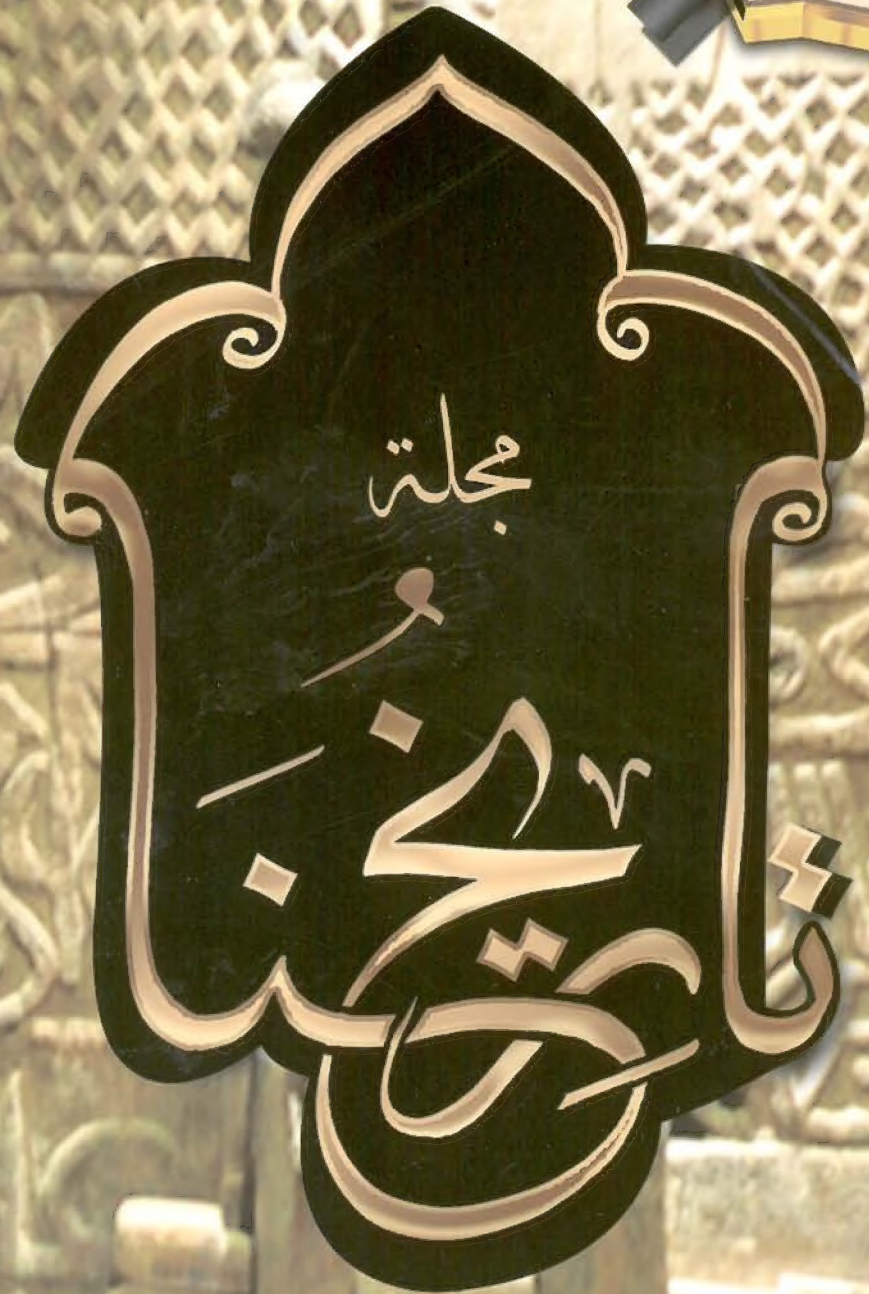 مجلة
تاريخُنَا